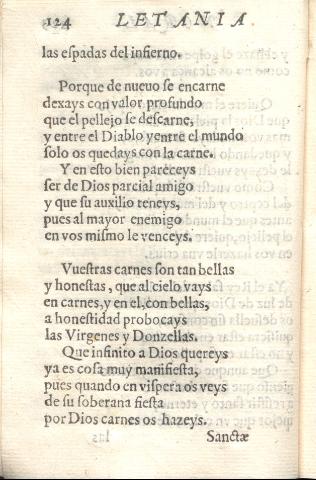 124 LETANIA
las espadas del infierno.
Porque de nuevo se encarne
dexays con valor profundo
que el pellejo se descarne,
y entre el Diablo yentre el mundo
solo os quedays con la carne.
Y en esto bien pareceys
ser de Dios parcial amigo
y que su auxilio teneys,
pues al mayor enemigo
en vos mismo le venceys.
Vuestras carnes son tan bellas
y honestas, que al cielo vays
en carnes, y en el, con bellas,
a honestidad probocays
las Virgenes y Donzellas.
Que infinito a Dios quereys
ya es cosa muy manifiesta,
pues quando en vispera os veys
de su soberana fiesta
por Dios carnes os hazeys.
Sanctæ